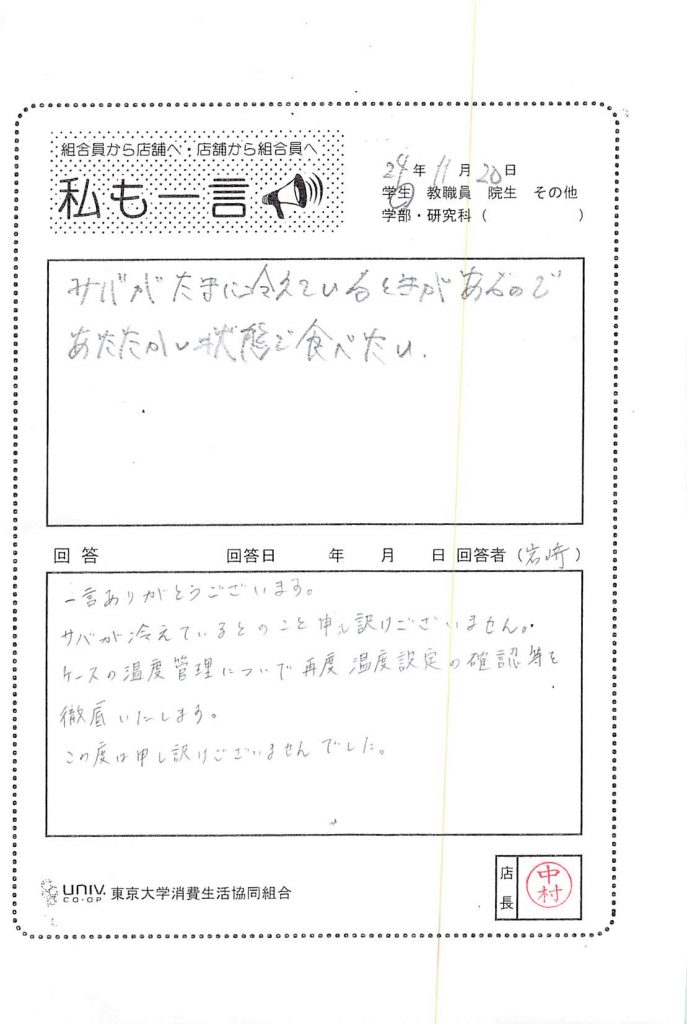 組合員から店舗へ・店舗から組合員へ
私も一言
24年11月20日
学生 教職員 院生 その他
学部・研究科（ ）
サバがたまに冷えているときがあるので
あたたかい状態で食べたい.
回答 回答日 年 月 日 回答者（岩崎）
一言ありがとうございます。
サバが冷えているとのこと申し訳けございません。
ケースの温度管理についで再度温度設定の確認等を
徹底いたします。
この度は申し訳けございませんでした。
UNIV. CO-OP 東京大学消費生活協同組合
店長 中村